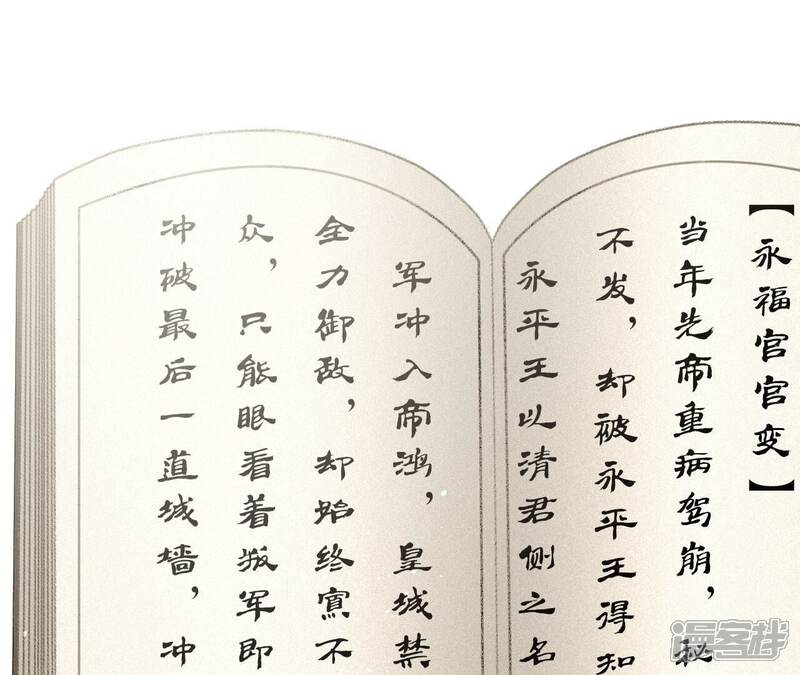 【永福官官变】
当年先帝重病驾崩，秘
不发，却被永平王得知
永平王以清君侧之名
军冲入帝鸿，皇城禁
全力御敌，却始终寡不
众，只能眼看着叛军即
冲破最后一道城墙，冲
漫客栈